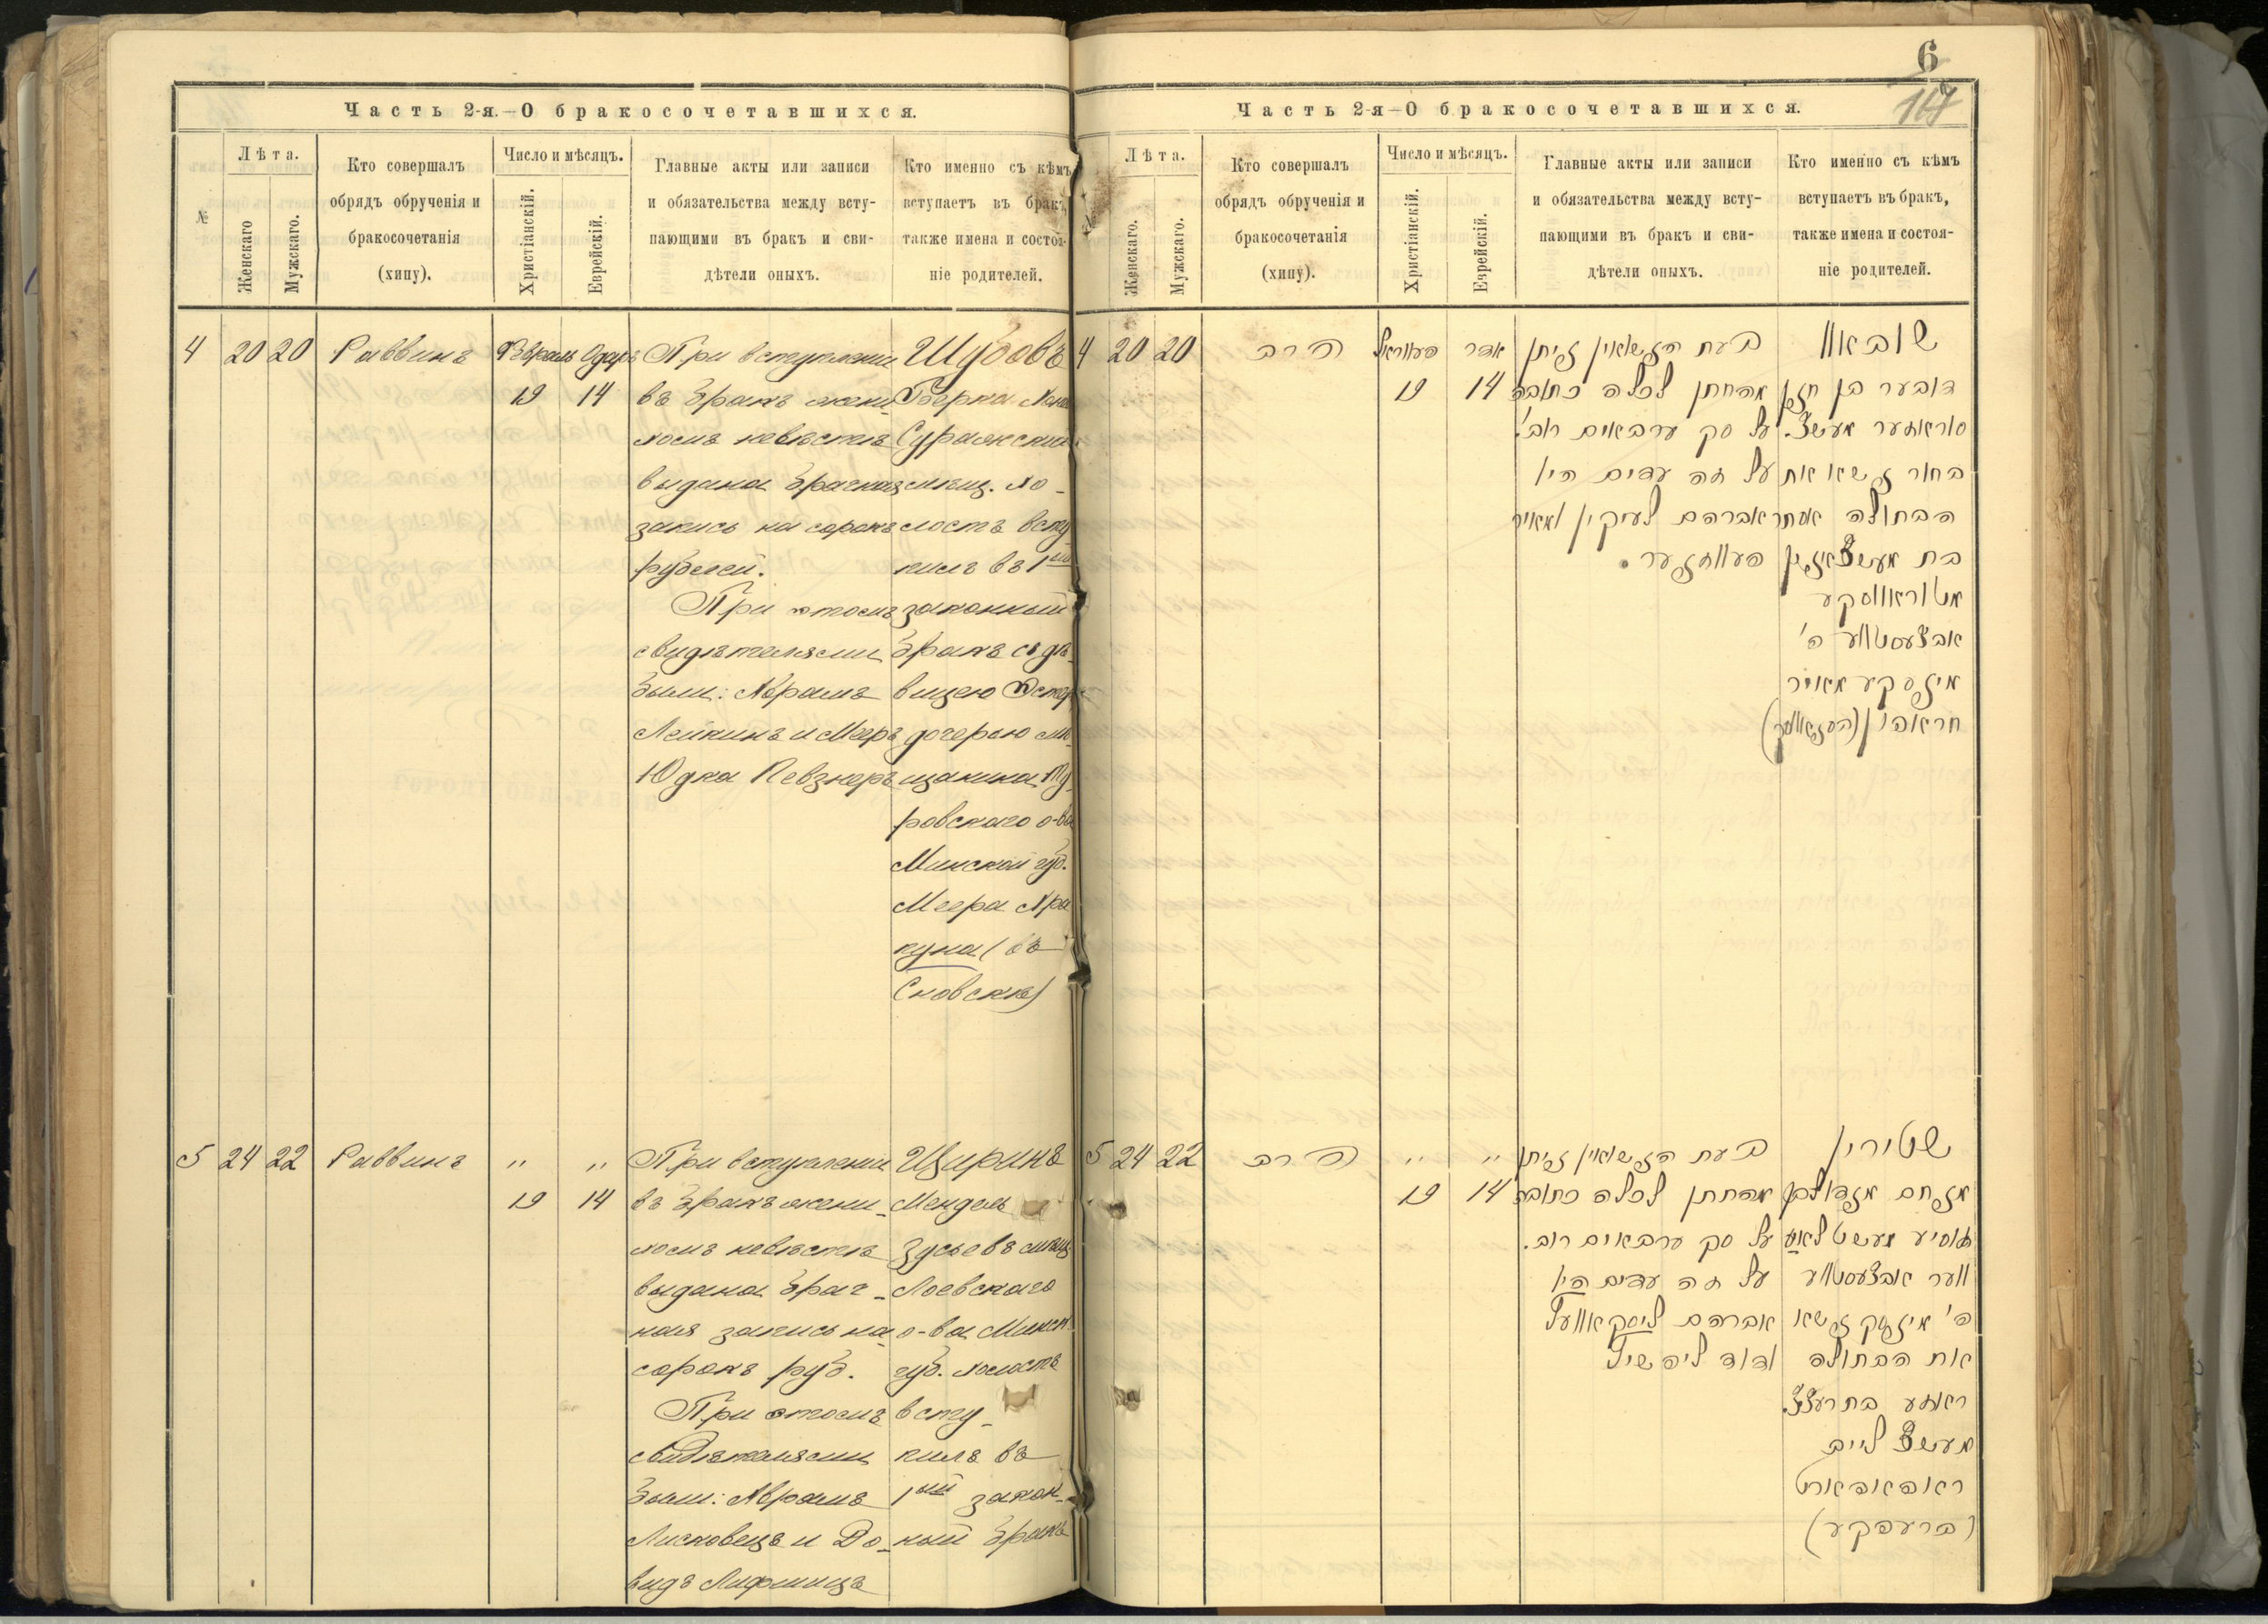 6
Часть 2-я.—О бракосочетавшихся.
№
Лѣта.
Женскаго
Мужскаго.
Кто совершалъ
обрядъ обрученія и
бракосочетанія
(хипу).
Число и мѣсяцъ.
Христіанскій.
Еврейскій.
Главные акты или записи
и обязательства между всту-
пающими въ бракъ и сви-
дѣтели оныхъ.
Кто именно съ кѣмъ
вступаетъ въ бракъ,
также имена и состоя-
ніе родителей.
4 20 20 Раввинъ
Февраль Одаръ
19 14
При вступленіи
въ бракъ жени-
хомъ невѣстѣ
выдана брачная
запись на сорокъ
рублей.
При этомъ
свидѣтелями
были: Абрамъ
Лейкинъ и Мееръ
Юдка Певзнеръ
Шубовъ
Берка
Суражскій
мѣщ. хо-
лостъ всту
пилъ въ 1ый
законный
бракъ съ дѣ-
вицею Эстер
дочерью мѣ-
щанина Ту-
ровскаго о-ва
Минской губ.
Меера Хра
куна (въ
Сновскѣ)
5 24 22 Раввинъ
" "
19 14
При вступленіи
въ бракъ жени-
хомъ невѣстѣ
выдана брач-
ная запись на
сорокъ руб.
При этомъ
свидѣтелями
были: Абрамъ
Лисковецъ и До-
видъ Лифшицъ
Щиринъ
Мендель
Зусьевъ мѣщ
Лоевскаго
о-ва Минск.
губ. холостъ
всту-
пилъ въ
1ый закон-
ный бракъ
Часть 2-я—О бракосочетавшихся.
Лѣта.
Женскаго.
Мужскаго.
Кто совершалъ
обрядъ обрученія и
бракосочетанія
(хипу).
Число и мѣсяцъ.
Христіанскій.
Еврейскій.
Главные акты или записи
и обязательства между всту-
пающими въ бракъ и сви-
дѣтели оныхъ.
Кто именно съ кѣмъ
вступаетъ въ бракъ,
также имена и состоя-
ніе родителей.
4 20 20 הרב
פעווראל אדר
19 14
בעת הנשואין ניתן
מהחתן לכלה כתובה
על סך ארבאים רוב'
על זה עדים היו
אברהם לייקין ומאיר
פעווזנער.
שובאוו
דובער בן חנן
סוראזער מעשצ.
בחור נשא את
הבתולה אסתר
בת מעשצאנין
טוראווסקע
אבצעסטווע ה'
מינסקע מאיר
5 24 22 הרב
" "
19 14
בעת הנשואין ניתן
מהחתן לכלה כתובה
על סך ארבאים רוב.
על זה עדים היו
אברהם ליסקאוועץ
ודוד ליפשיץ
שטירין
מנחם מנדל בן
זוסיע מעשצ לאיע
ווער אבצעסטווע
ה' מינסק נשא
את הבתולה
מעשצ לייב